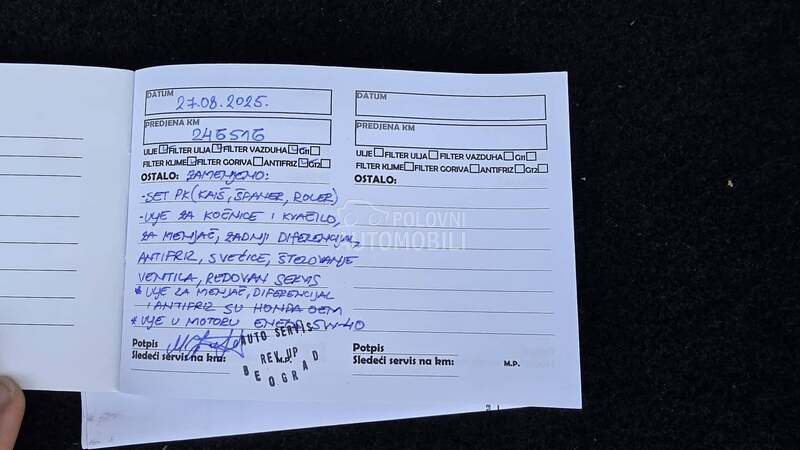 DATUM
27.08.2025.
PREDJENA KM
246516
ULJE FILTER ULJA FILTER VAZDUHA G11
FILTER KLIME FILTER GORIVA ANTIFRIZ G12
OSTALO: ZAMENJENO:
-SET PK (KAIŠ, ŠPANER, ROLER)
-ULJE ZA KOČNICE I KVAČILO,
ZA MENJAČ, ZADNJI DIFERENCIJAL,
ANTIFRIZ, SVEĆICE, ŠTELOVANJE
VENTILA, REDOVAN SERVIS
* ULJE ZA MENJAČ, DIFERENCIJAL
I ANTIFRIZ SU HONDA OEM
* ULJE U MOTORU 5W-40
Potpis
Sledeći servis na km:
M.P.
AUTO SERVIS
REV UP
BEOGRAD
DATUM
PREDJENA KM
ULJE FILTER ULJA FILTER VAZDUHA G11
FILTER KLIME FILTER GORIVA ANTIFRIZ G12
OSTALO:
Potpis
Sledeći servis na km:
M.P.
POLOVNI
AUTOMOBILI